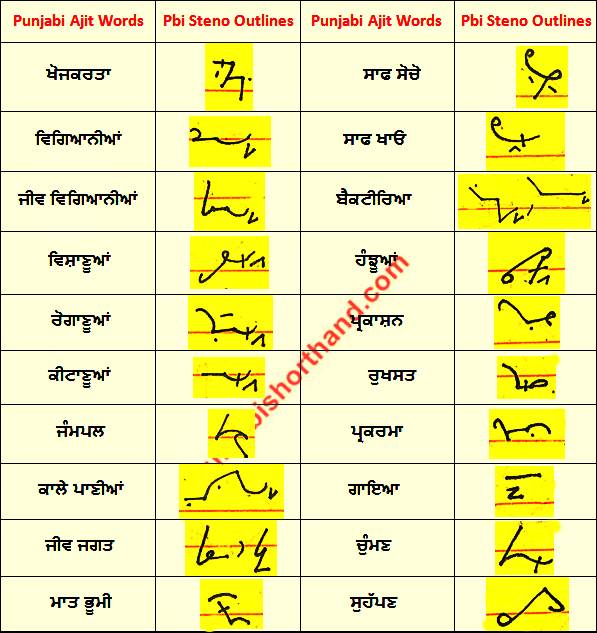 Punjabi Ajit Words Pbi Steno Outlines Punjabi Ajit Words Pbi Steno Outlines
ਖੋਜਕਰਤਾ ਸਾਫ ਸੋਚੋ
ਵਿਗਿਆਨੀਆਂ ਸਾਫ ਖਾਓ
ਜੀਵ ਵਿਗਿਆਨੀਆਂ ਬੈਕਟੀਰਿਆ
ਵਿਸ਼ਾਣੂਆਂ ਹੰਝੂਆਂ
ਰੋਗਾਣੂਆਂ ਪ੍ਰਕਾਸ਼ਨ
ਕੀਟਾਣੂਆਂ ਰੁਖਸਤ
ਜੰਮਪਲ ਪ੍ਰਕਰਮਾ
ਕਾਲੇ ਪਾਣੀਆਂ ਗਾਇਆ
ਜੀਵ ਜਗਤ ਚੁੰਮਣ
ਮਾਤ ਭੂਮੀ ਸੁਹੱਪਣ